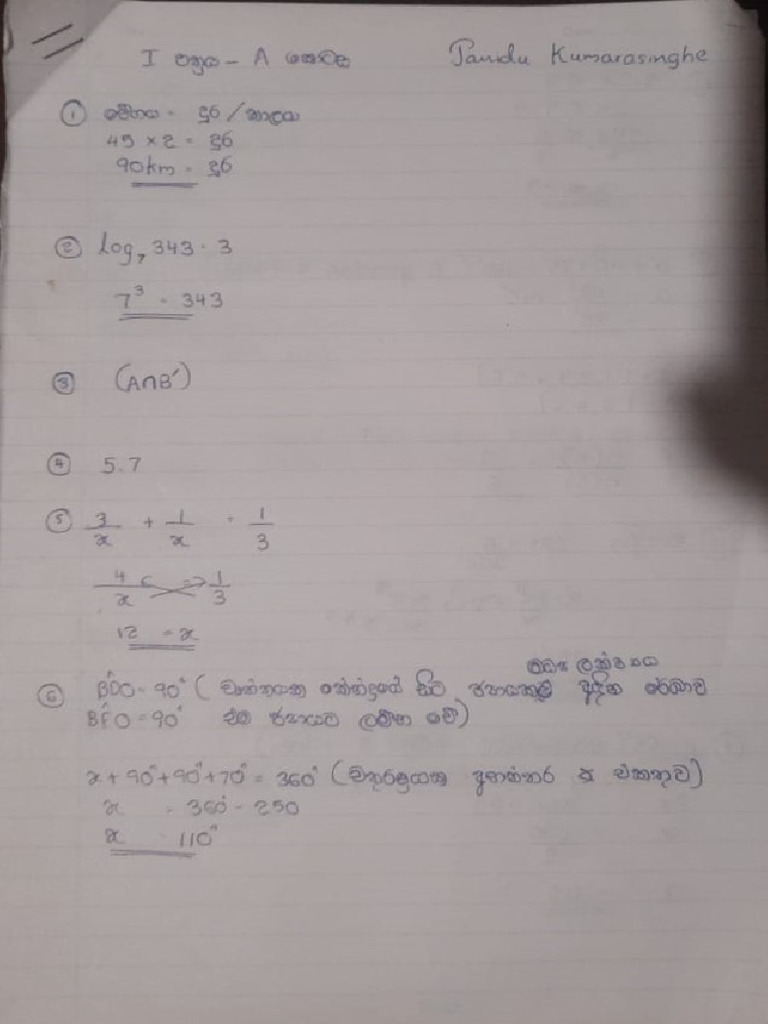 I පත්‍රය - A කොටස Tanidu Kumarasinghe
① වේගය = දුර / කාලය
45 × 2 = දුර
90km = දුර
② log₇ 343 = 3
7³ = 343
③ (A∩B′)
④ 5.7
⑤ 3/x + 1/x = 1/3
4/x 1/3
12 = x
මධ්‍ය ලක්ෂ්‍යය
⑥ BD̂O = 90° ( වෘත්තයක කේන්ද්‍රයේ සිට ජ්‍යායකට අදින රේඛාව
BF̂O = 90° එම ජ්‍යායට ලම්භ වේ)
x + 90° + 90° + 70° = 360° (චතුරස්‍රයක අභ්‍යන්තර එකතුව)
x = 360° - 250
x = 110°